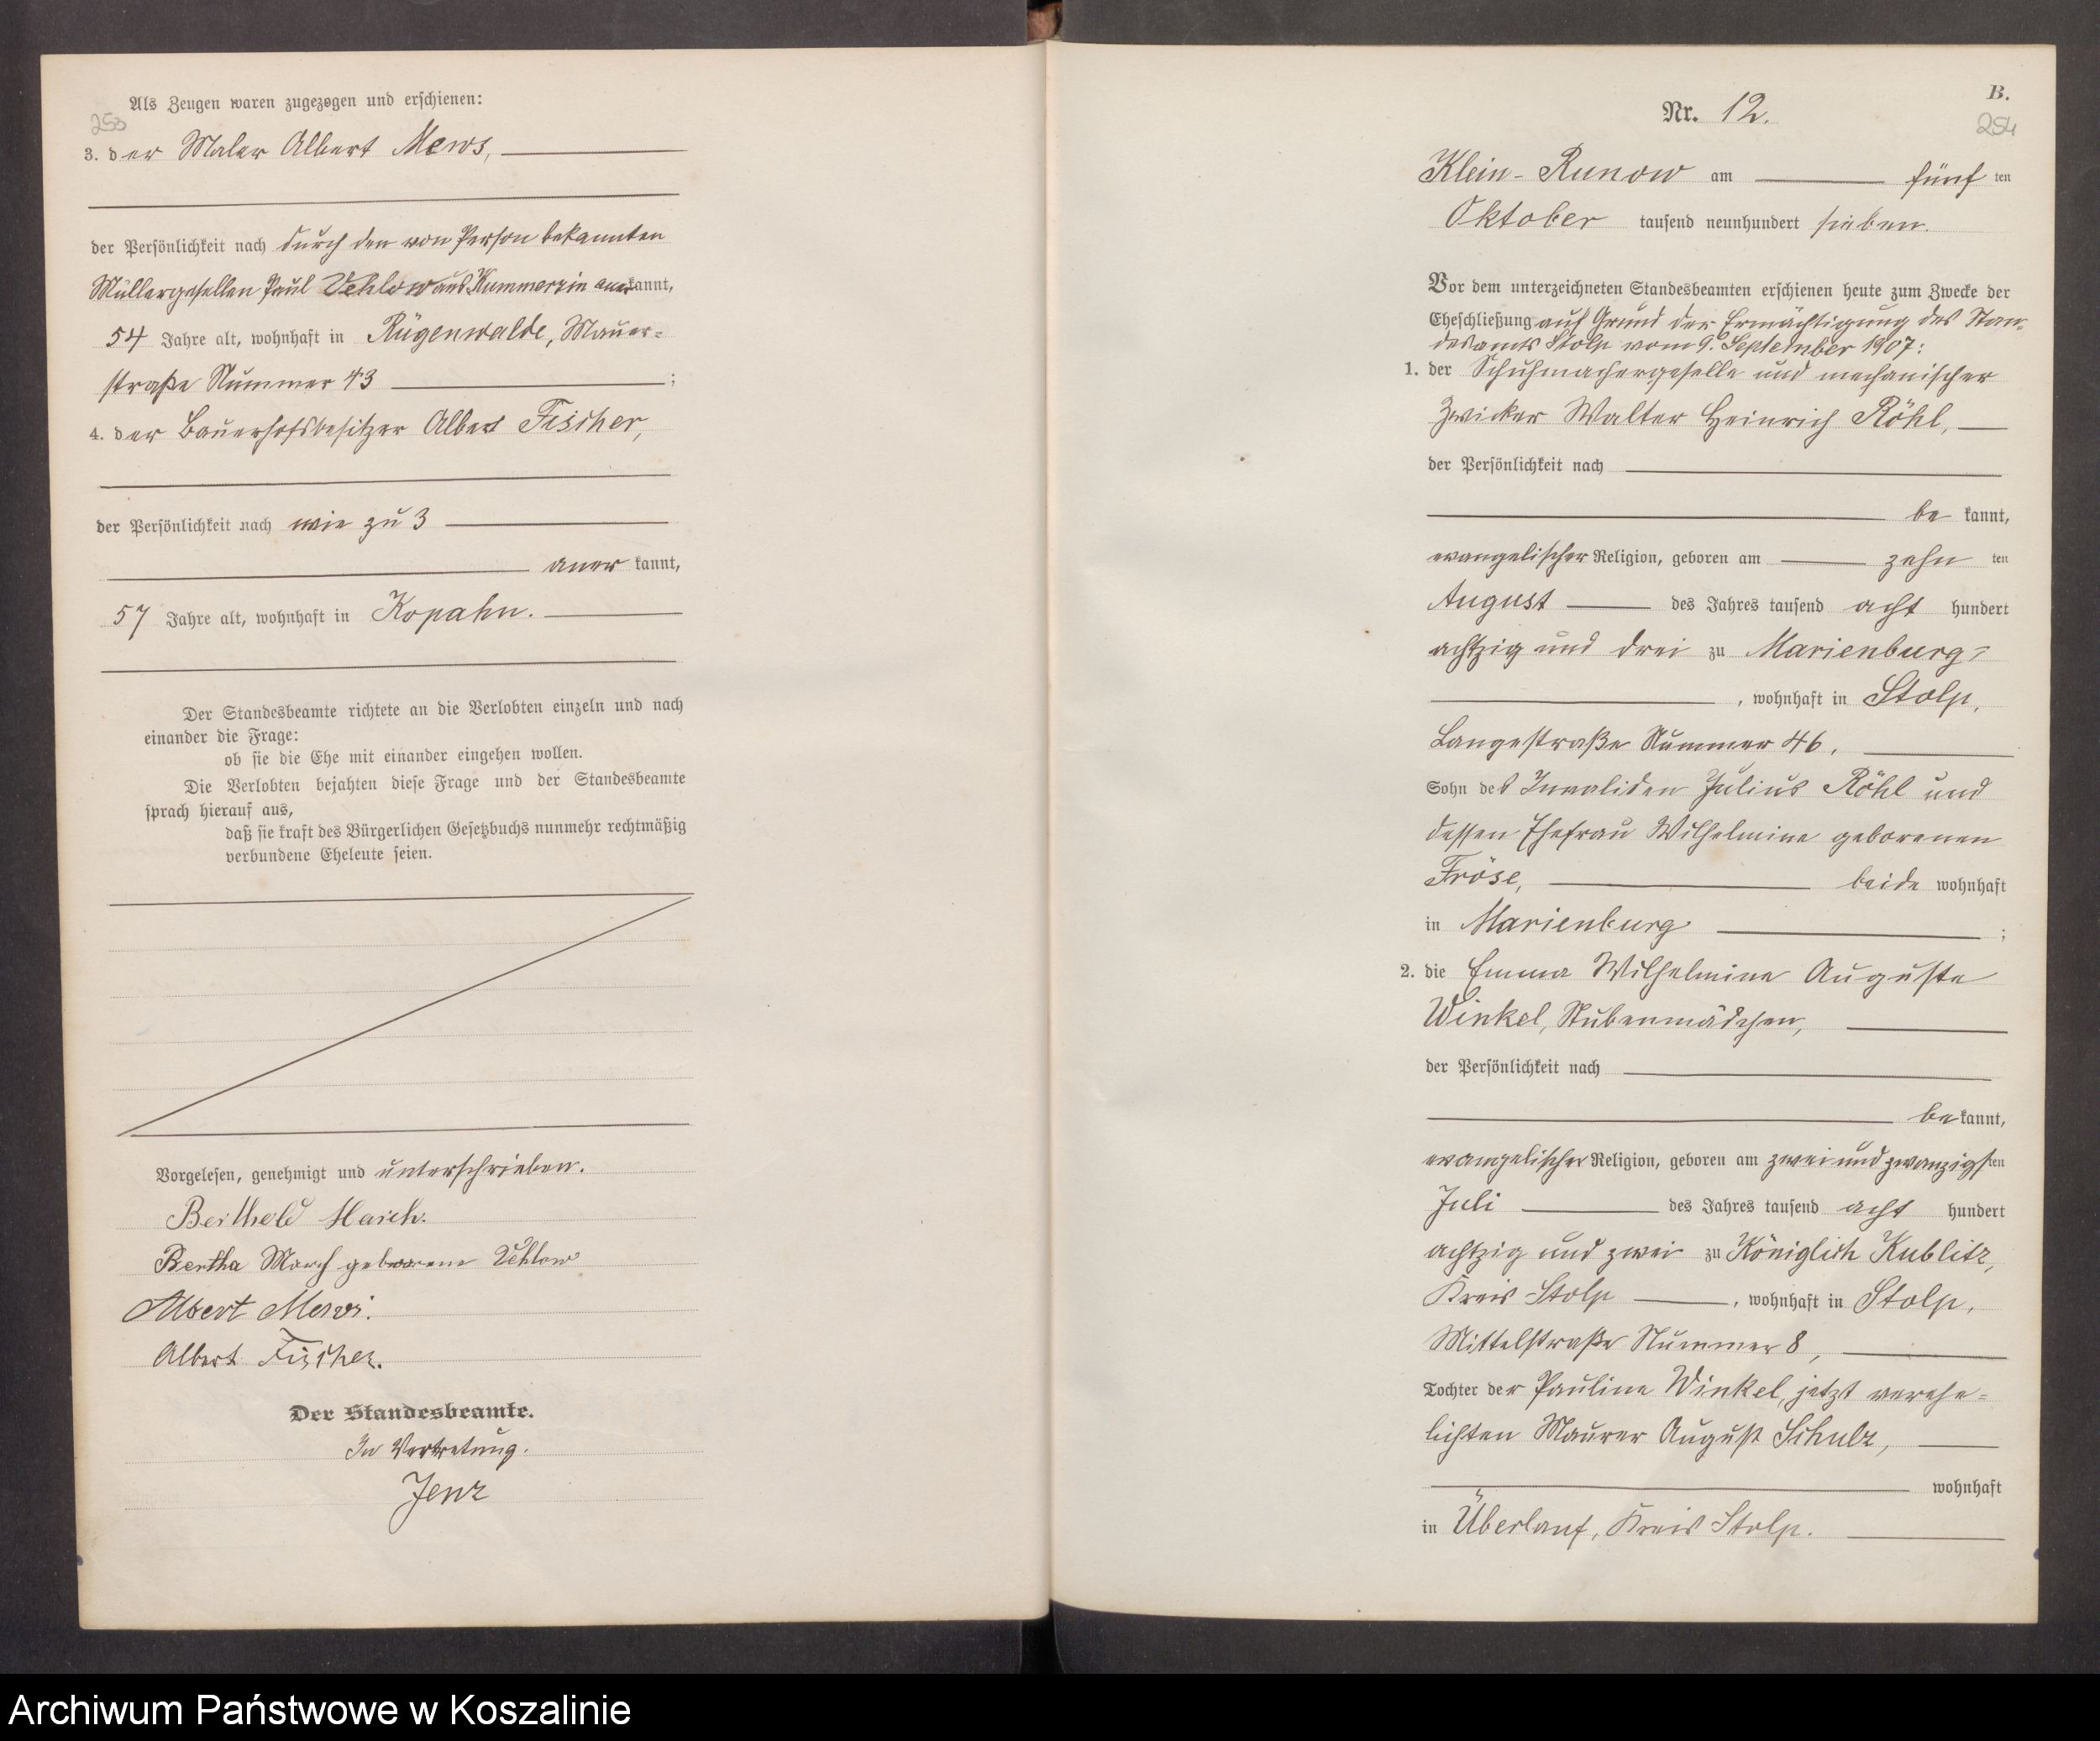 Als Zeugen waren zugezogen und erschienen:
253
3. der Maler Albert Mews,
der Persönlichkeit nach durch den von Person bekannten
Müllergesellen Paul Vehlow aus Kummerzin anerkannt,
54 Jahre alt, wohnhaft in Rügenwalde, Mauer=
straße Nummer 43 ;
4. der Bauerhofsbesitzer Albert Fischer,
der Persönlichkeit nach wie zu 3
anerkannt,
57 Jahre alt, wohnhaft in Kopahn.
Der Standesbeamte richtete an die Verlobten einzeln und nach
einander die Frage:
ob sie die Ehe mit einander eingehen wollen.
Die Verlobten bejahten diese Frage und der Standesbeamte
sprach hierauf aus,
daß sie kraft des Bürgerlichen Gesetzbuchs nunmehr rechtmäßig
verbundene Eheleute seien.
Vorgelesen, genehmigt und unterschrieben.
Berthold
Bertha geborene Vehlow
Albert Mews.
Albert Fischer.
Der Standesbeamte.
In Vertretung.
Jenz
B.
254
Nr. 12.
Klein-Runow am fünften
Oktober tausend neunhundert sieben.
Vor dem unterzeichneten Standesbeamten erschienen heute zum Zwecke der
Eheschließung auf Grund der Ermächtigung des Stan=
desamts Stolp vom 9. September 1907:
1. der Schuhmachergeselle und mechanischer
Zwicker Walter Heinrich Röhl,
der Persönlichkeit nach
bekannt,
evangelischer Religion, geboren am zehnten
August des Jahres tausend acht hundert
achtzig und drei zu Marienburg
, wohnhaft in Stolp,
Langestraße Nummer 46,
Sohn des Invaliden Julius Röhl und
dessen Ehefrau Wilhelmine geborenen
Fröse, beide wohnhaft
in Marienburg ;
2. die Emma Wilhelmine Auguste
Winkel, Stubenmädchen,
der Persönlichkeit nach
bekannt,
evangelischer Religion, geboren am zweiundzwanzigsten
Juli des Jahres tausend acht hundert
achtzig und zwei zu Königlich Kublitz,
Kreis Stolp , wohnhaft in Stolp,
Mittelstraße Nummer 8,
Tochter der Pauline Winkel, jetzt verehe=
lichten Maurer August Schulz,
wohnhaft
in Überlauf, Kreis Stolp.
Archiwum Państwowe w Koszalinie